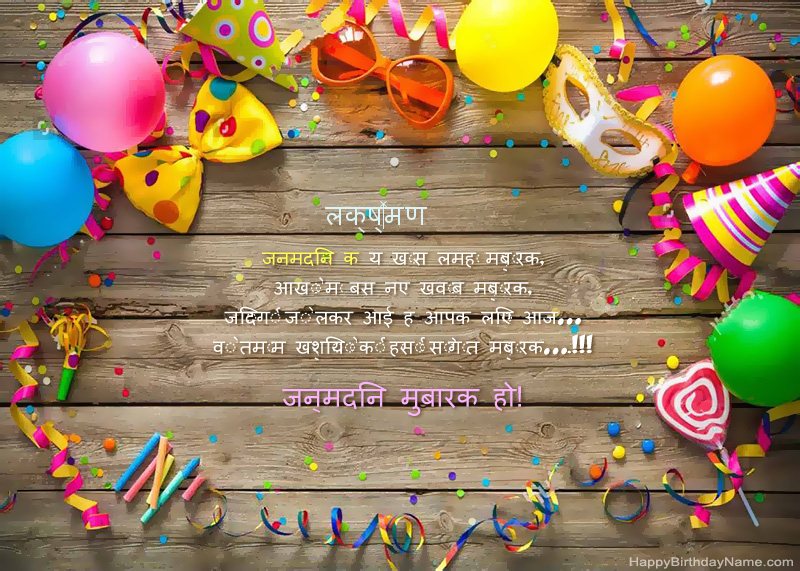 लक्ष्मण
जन्मदिन के ये खास लम्हें मुबारक,
आँखों में बसे नए ख्वाब मुबारक,
जिंदगी जो लेकर आई है आपके लिए आज...
वो तमाम खुशियों की हंसीं सौगात मुबारक...!!!
जन्मदिन मुबारक हो!
HappyBirthdayName.com